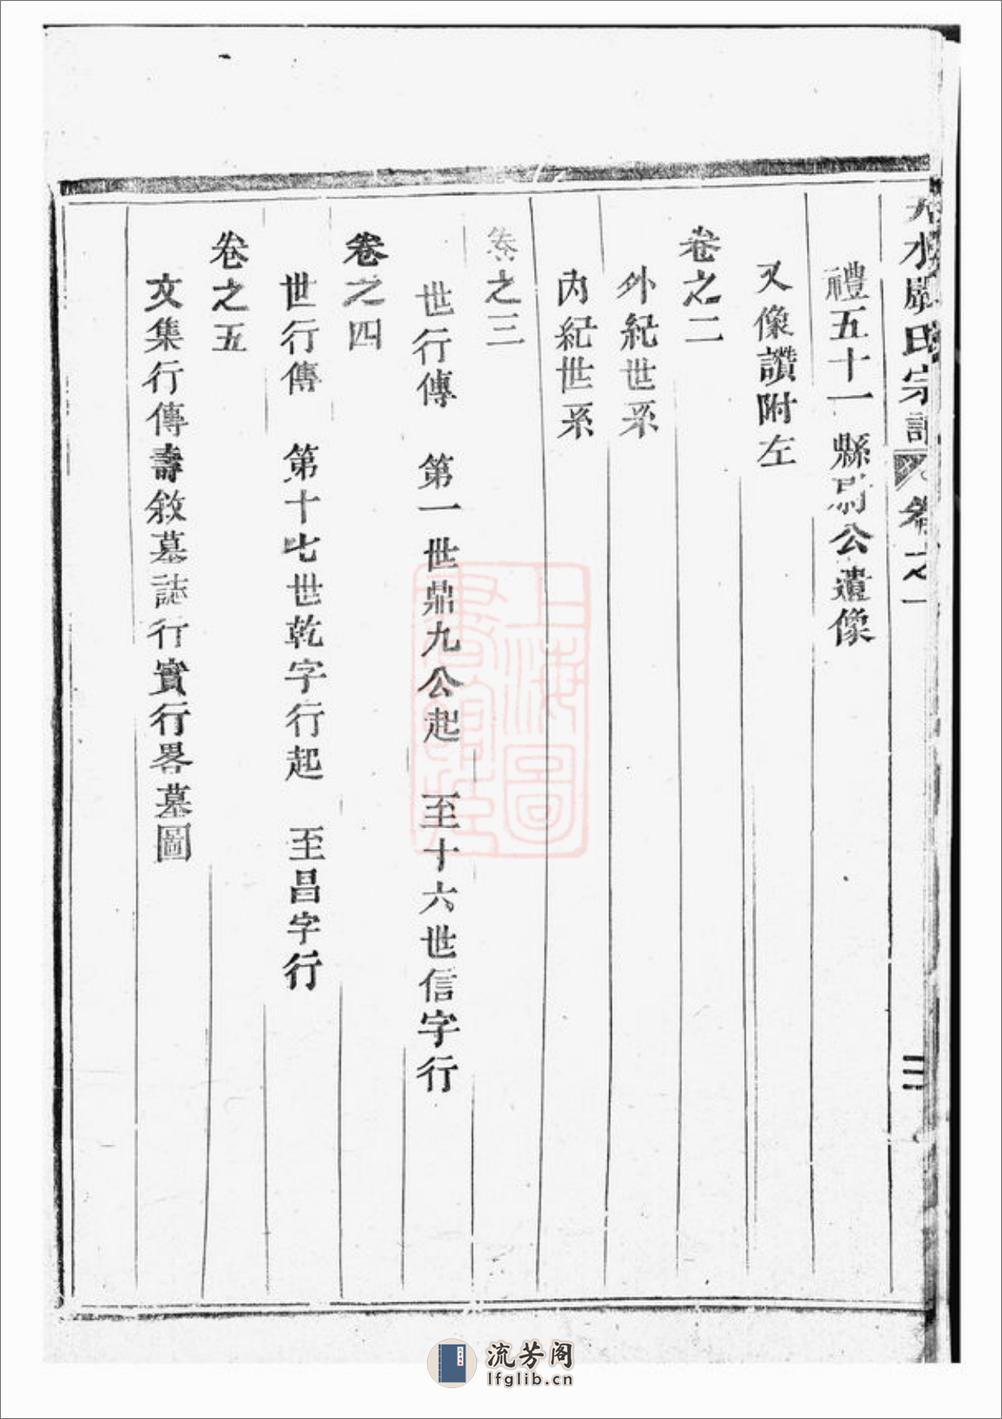 水嚴氏宗譜 卷之一 二
禮五十一縣尉公遺像
又像讚附左
卷之二
外紀世系
內紀世系
卷之三
世行傳 第一世鼎九公起 至十六世信字行
卷之四
世行傳 第十七世乾字行起 至昌字行
卷之五
文集行傳壽敘墓誌行實行畧墓圖
上海圖書館藏
流芳阁
lfglib.cn